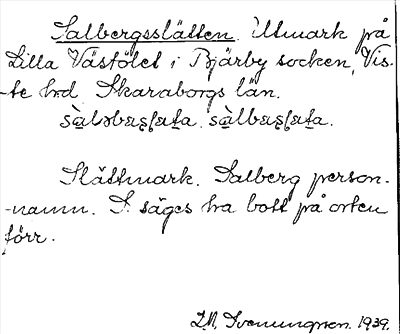 Salbergsslätten. Utmark på
Lilla Västölet i Bjärby socken, Vis-
-te hd Skaraborgs län.
Slättmark. Salberg person-
-namn. S. säges ha bott på orten
förr.
Svenungsson. 1939.